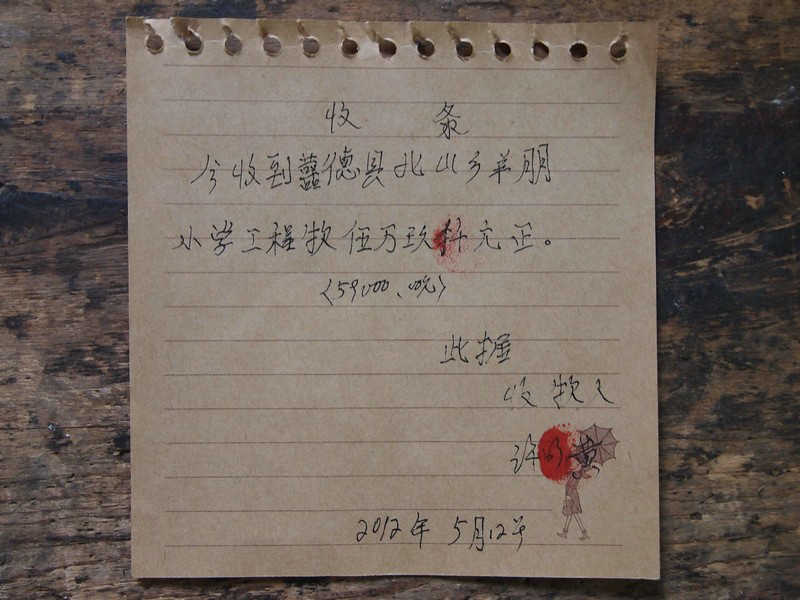 收 条
今收到蘷德县北山乡羊朋
小学工程款伍万玖仟元正。
(59000.00元)
此据
收款人
许 黄
2012年5月12号